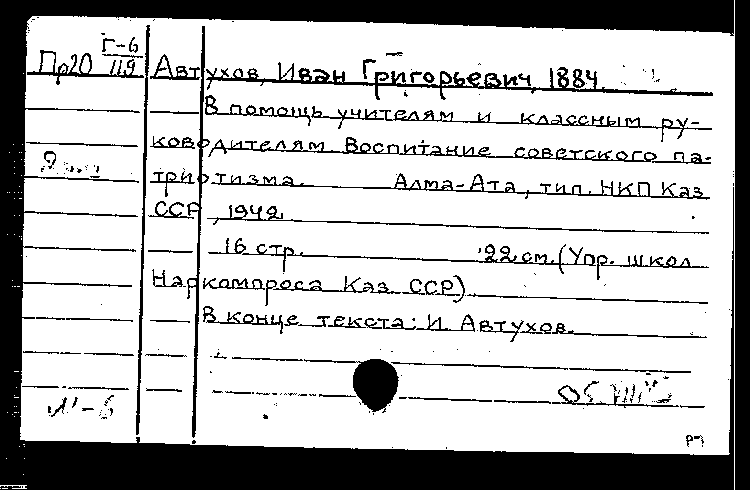 Пр20 Г-6
119
Автухов, Иван Григорьевич, 1884
В помощь учителям и классным ру-
ководителям Воспитание советского па-
триотизма. Алма-Ата, тип. НКП Каз
ССР, 1942
16 стр. 22 см. (Упр. школ
Наркомпроса Каз. ССР).
В конце текста: И. Автухов.